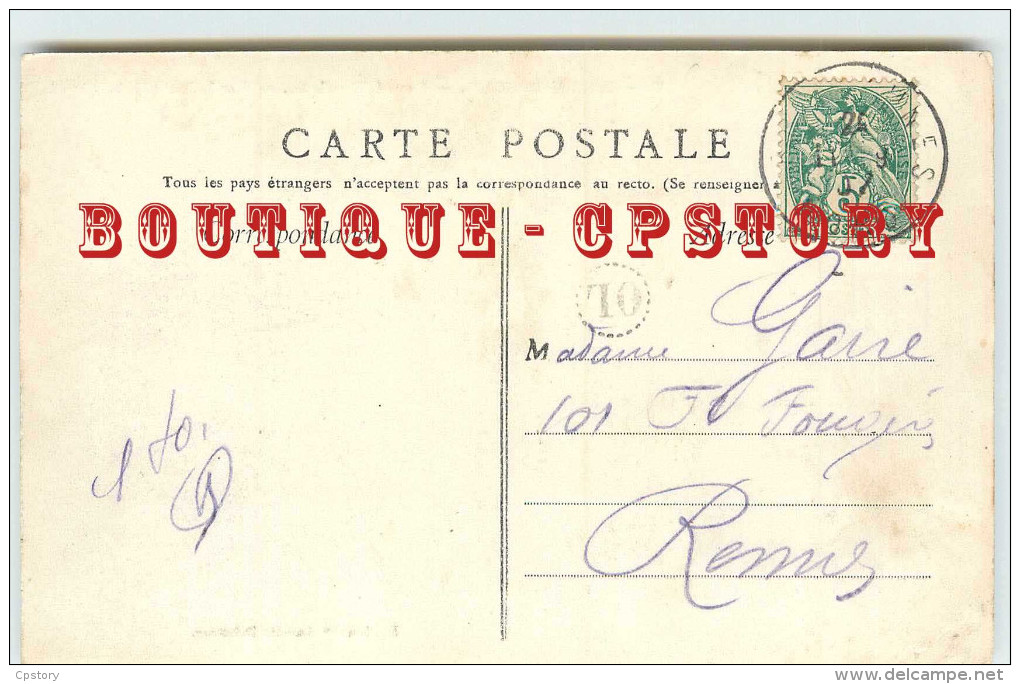 CARTE POSTALE
Tous les pays étrangers n'acceptent pas la correspondance au recto. (Se renseigner
BOUTIQUE - CPSTORY
Correspondance
Adresse
OL
Madame Garre
101 Fg Fougères
Rennes
Cpstory
delcampe.net